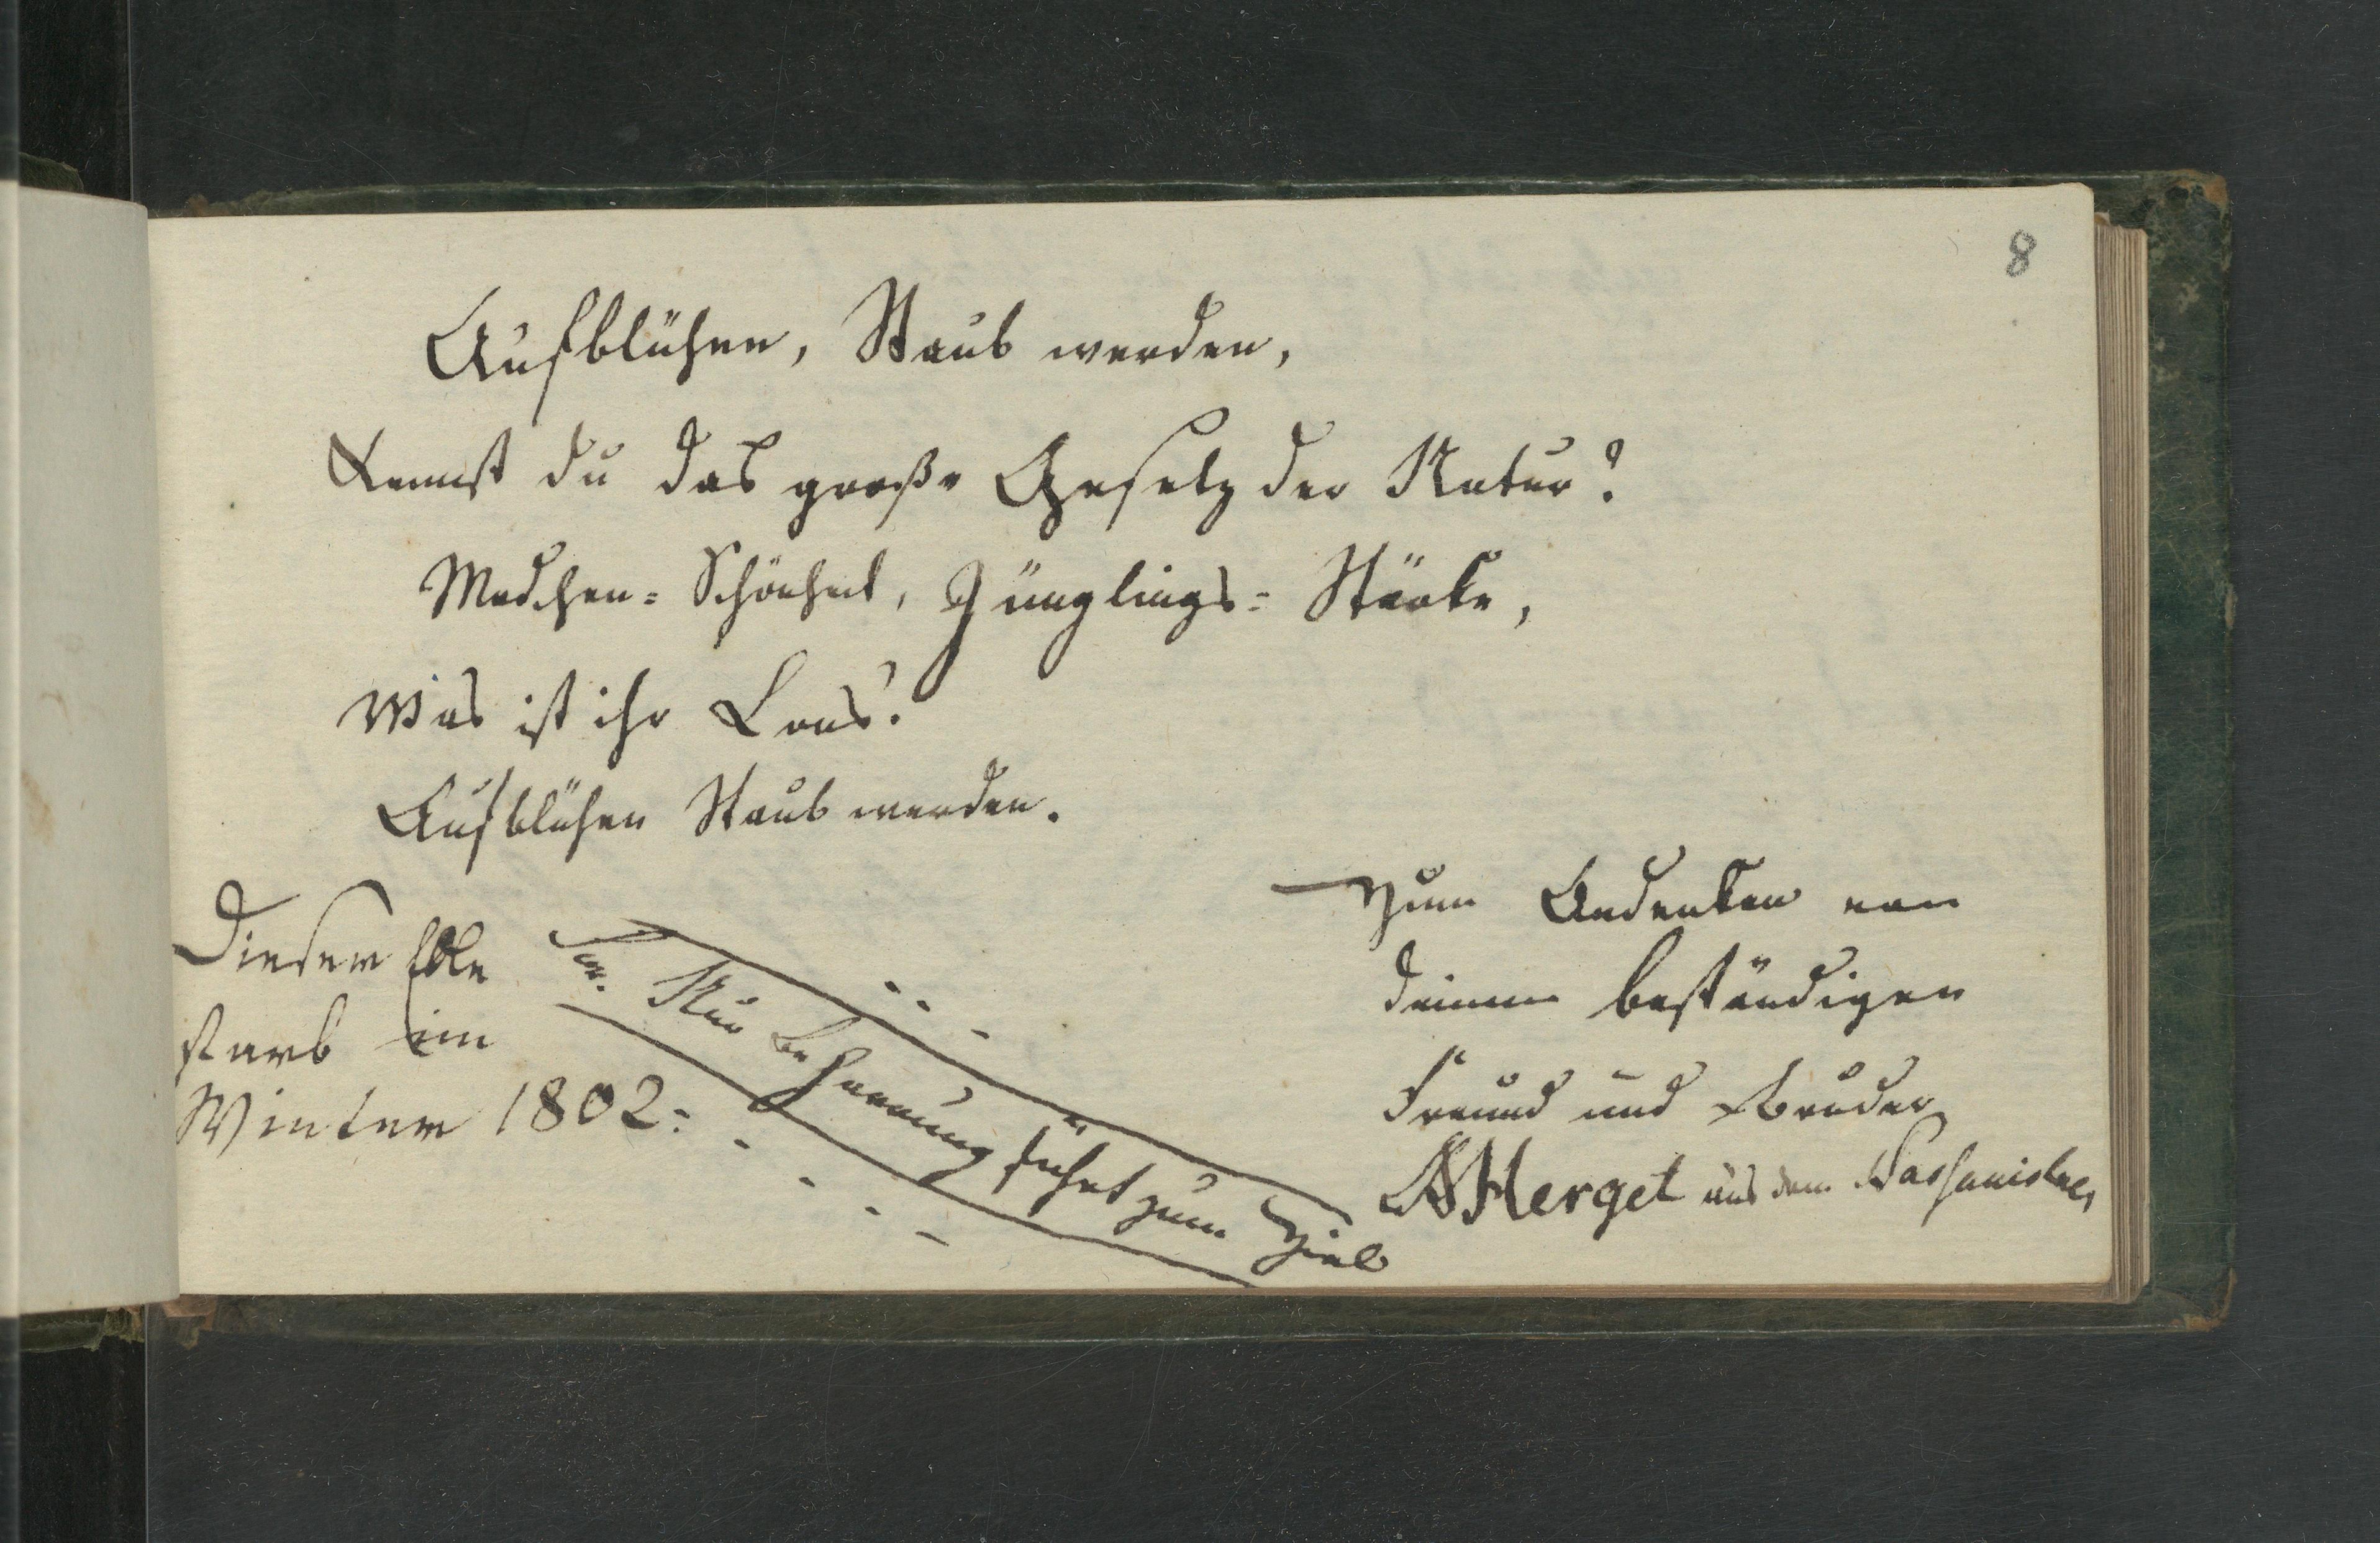 8
Aufblühen, Staub werden,
Kennst du das große Gesetz der Natur?
Madchen- Schönheit, Jünglings- Stärke,
Was ist ihr Loos?
Aufblühen Staub werden.
Dieser Edle
starb im
Winter 1802.
Nur Beharrung führt zum Ziel
Zum Andenken von
deinem beständigen
Freund und Bruder
Herget aus dem